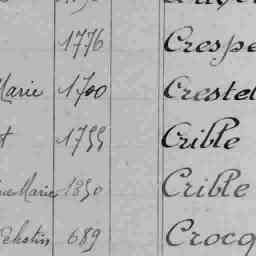 1776 Crespe
Marie 1700 Crestel
t 1755 Crible
Marie 1850 Crible
689 Crocq